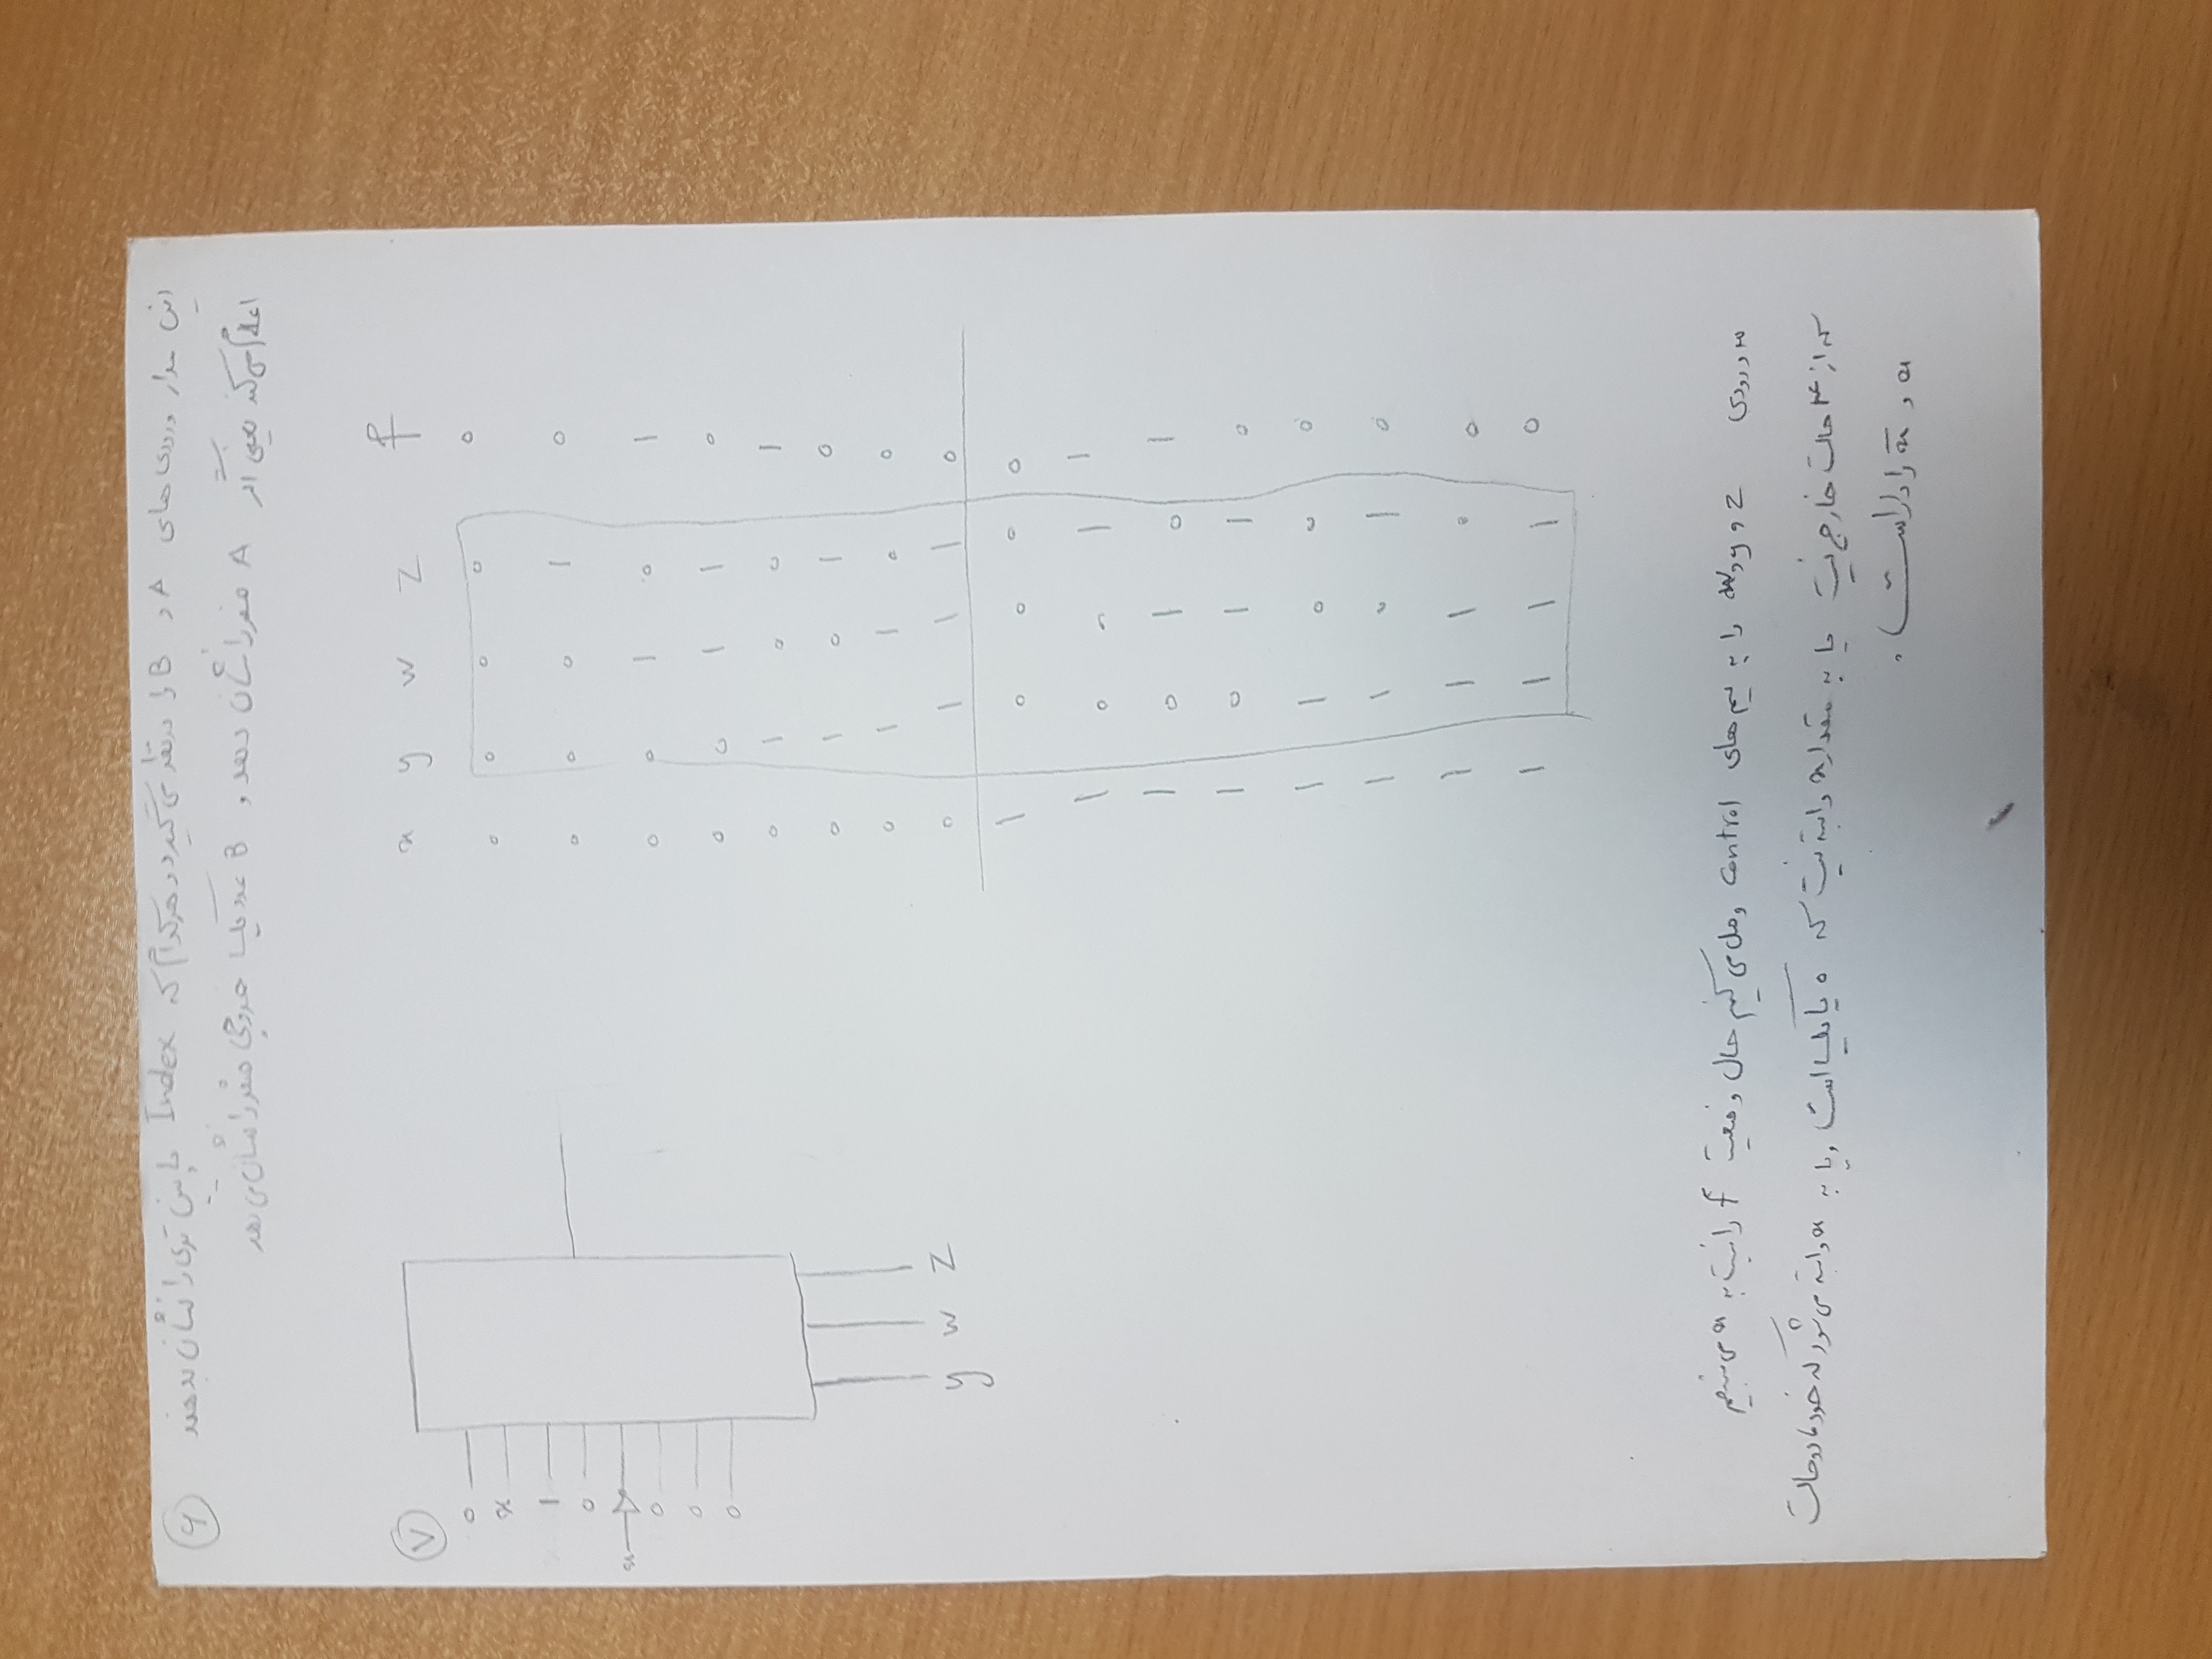 ۶ این مدار ورودی های A و B را در نظر می گیرد و هر کدام که Index پایین تری را نشان بدهند
اعلام می کند یعنی اگر A صفر را نشان دهد و B عدد یک را خروجی صفر را نشان می دهد
۷
0
x
1
0
x
0
0
0
y w z
x y w z f
0 0 0 0 0
0 0 0 1 0
0 0 1 0 1
0 0 1 1 0
0 1 0 0 1
0 1 0 1 0
0 1 1 0 0
0 1 1 1 0
1 0 0 0 0
1 0 0 1 1
1 0 1 0 1
1 0 1 1 0
1 1 0 0 0
1 1 0 1 0
1 1 1 0 0
1 1 1 1 0
۳ ورودی z و y و w را به سیم های control وصل می کنیم حال وضعیت f را نسبت به x می سنجیم
که از ۴ حالت خارج نیست یا به مقدار x وابسته نیست که 0 یا یک است و یا به x وابسته می شود که خود دو حالت
x و x̄ را داراست .